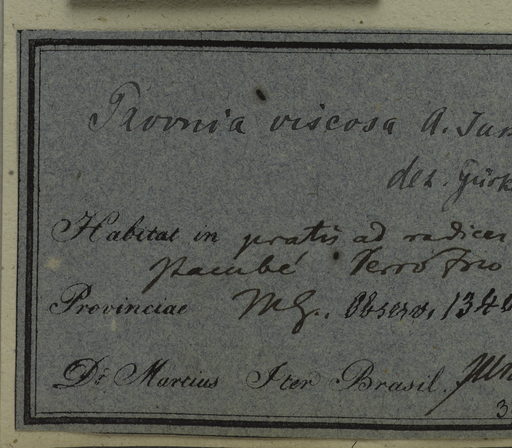 Pavonia viscosa A. Juss
det. Gürk
Habitat in pratis ad radices
Itambé Terro frio
Provinciae MG. Observ. 134
Dr Martius Iter Brasil. Jun
3